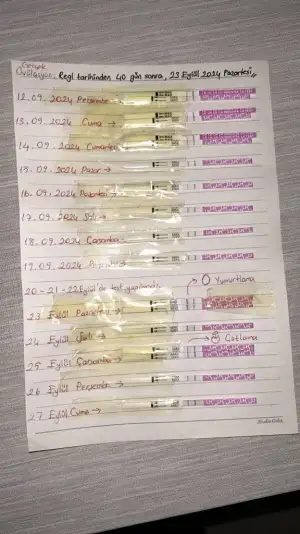 Gerçek
Ovülasyon: Regl tarihinden 40 gün sonra, 23 Eylül 2024 Pazartesi
12.09.2024 Perşembe →
13.09.2024 Cuma →
14.09.2024 Cumartesi
15.09.2024 Pazar →
16.09.2024 Pazartesi →
17.09.2024 Salı →
18.09.2024 Çarşamba →
19.09.2024 Perşembe →
20-21-22 Eylül'de test yapılmadı.
→ Yumurtlama
23 Eylül Pazartesi →
24 Eylül Salı →
→ Çatlama
25 Eylül Çarşamba →
26 Eylül Perşembe →
27 Eylül Cuma →